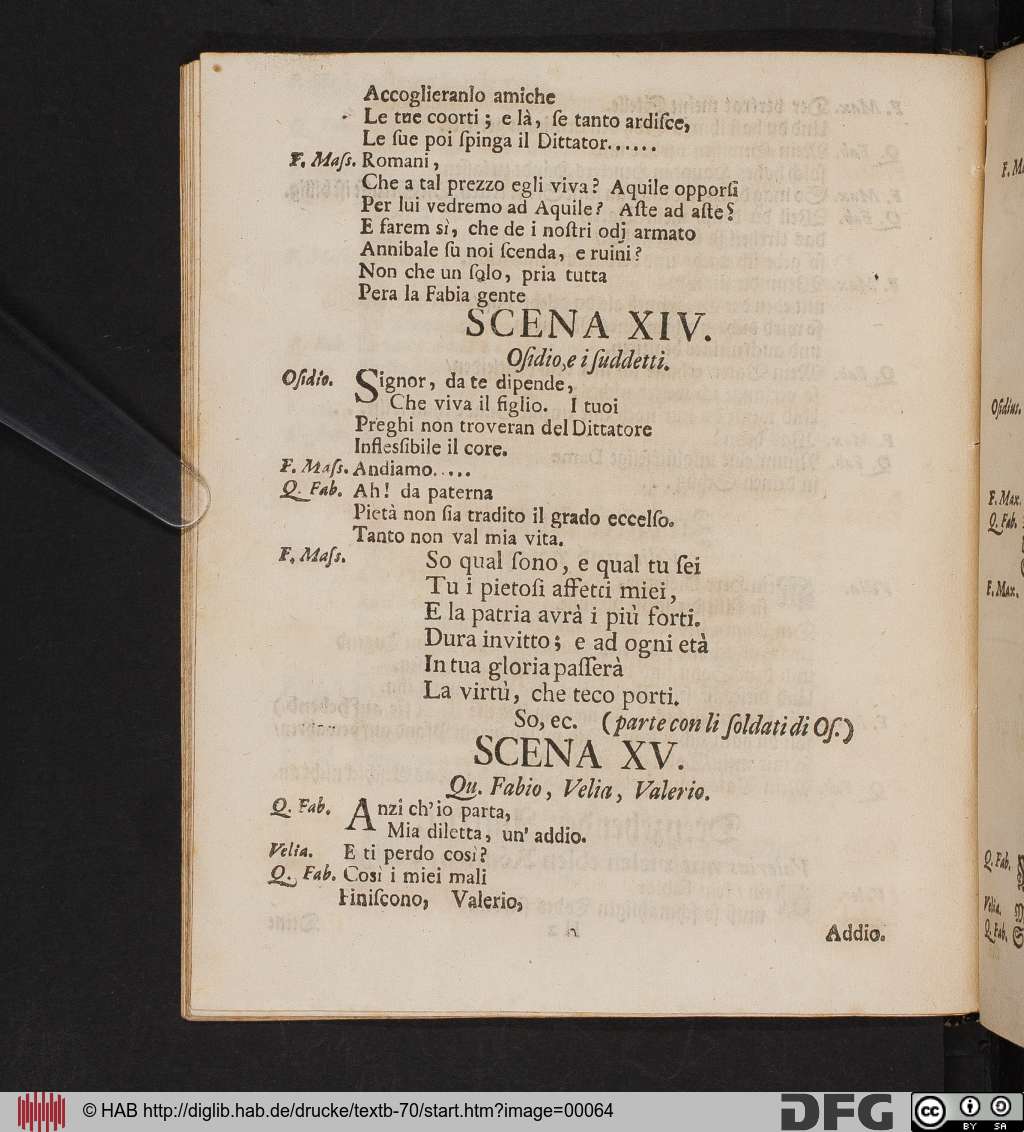 Accoglieranlo amiche
Le tue coorti; e là, ſe tanto ardiſce,
Le ſue poi ſpinga il Dittator......
F. Maſs. Romani,
Che a tal prezzo egli viva? Aquile opporſi
Per lui vedremo ad Aquile? Aſte ad aſte?
E farem sì, che de i noſtri odj armato
Annibale ſù noi ſcenda, e ruini?
Non che un ſolo, pria tutta
Pera la Fabia gente
SCENA XIV.
Oſidio, e i ſuddetti.
Oſidio. Signor, da te dipende,
Che viva il figlio. I tuoi
Preghi non troveran del Dittatore
Infleſſibile il core.
F. Maſs. Andiamo.....
Q. Fab. Ah! da paterna
Pietà non ſia tradito il grado eccelſo.
Tanto non val mia vita.
F. Maſs. So qual ſono, e qual tu ſei
Tu i pietoſi affetti miei,
E la patria avrà i più forti.
Dura invitto; e ad ogni età
In tua gloria paſſerà
La virtù, che teco porti.
So, ec. (parte con li ſoldati di Oſ.)
SCENA XV.
Qu. Fabio, Velia, Valerio.
Q. Fab. Anzi ch'io parta,
Mia diletta, un' addio.
Velia. E ti perdo così?
Q. Fab. Così i miei mali
Finiſcono, Valerio,
Addio.
F. Max.
Oſidius.
F. Max.
Q. Fab.
F. Max.
Q. Fab.
Velia.
Q. Fab.
© HAB http://diglib.hab.de/drucke/textb-70/start.htm?image=00064
DFG
cc BY SA